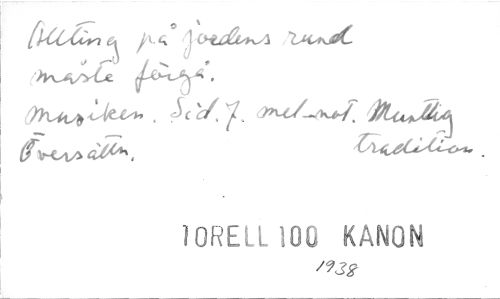 Allting på jordens rund
måste förgå.
musiken. Sid. 7. mel-not. Muntlig
Översättn. tradition.
TORELL 100 KANON
1938